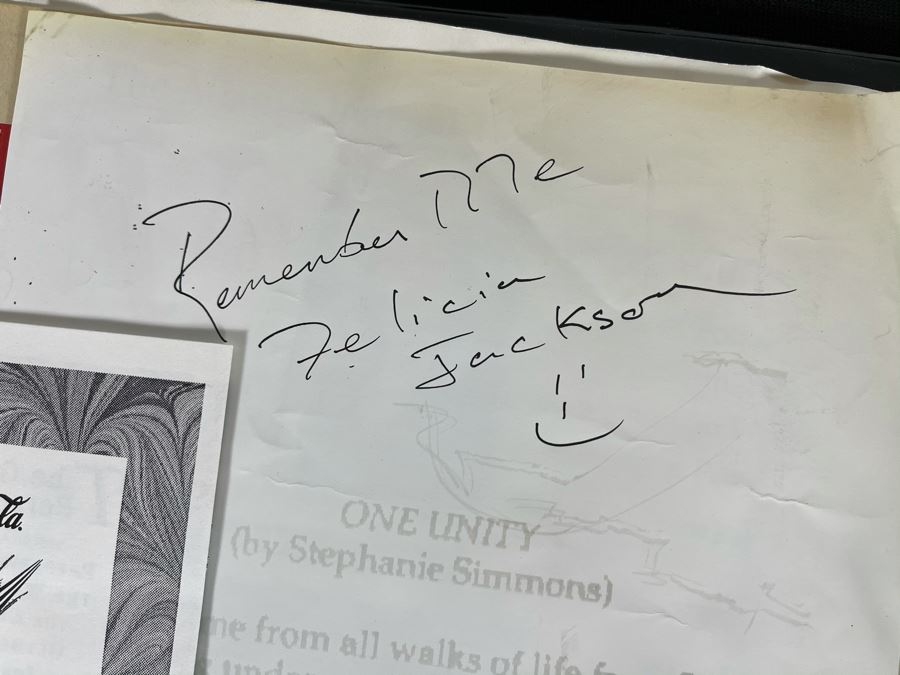 Remember Me
Felicia
Jackson
la.
ONE UNITY
(by Stephanie Simmons)
me from all walks of life